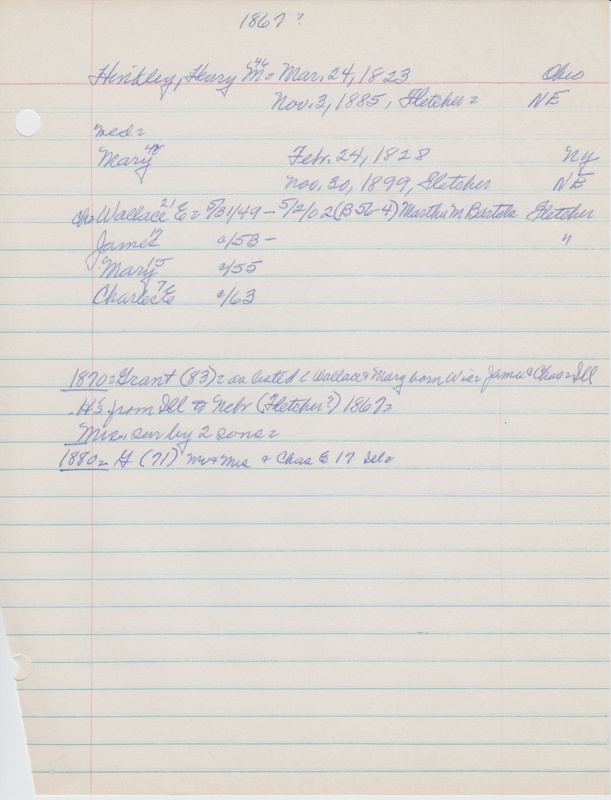 1867?
Hinkley, Henry M⁴⁶ = Mar. 24, 1823 Ohio
Nov. 3, 1885, Fletcher = NE
Med =
Mary⁴² Febr. 24, 1828 Ny
Nov. 30, 1899, Fletcher NE
Ch= Wallace²¹ E = 5/31/49 - 5/2/02 (B56-4) Martha M Bartels Fletcher
James¹⁷ a/53 - "
Mary¹⁵ a/55
Charles⁷ E a/63
1870 = Grant (83) = as listed Wallace & Mary born Wis = James & Chas = Ill
H's from Ill to Nebr (Fletcher?) 1867 =
Mrs. sur by 2 sons =
1880 = H (71) Mr & Mrs & Chas E 17 Ill =